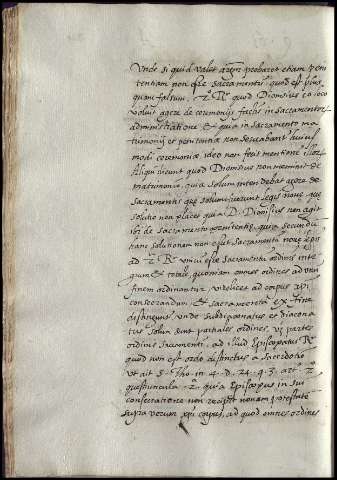 Unde si quid valet argum probaret etiam peni
tentiam non esse sacramentum, quod est plus
quam falsum, 2º Rº quod Dionisius eo loco
voluit agere de ceremonijs factis in sacramentorum
administratione & quia in sacramento ma
trimonij et penitentia non servabant huius
modi ceremoniæ ideo non fecit mentionem illor
Aliqui dicunt quod Dionisius non meminit de
matrimonio, quia solum intendebat agere de
sacramentis quæ solum fuerunt legis novæ quæ
solutio non placet quia D. Dionisius non agit
ibi de sacramento penitentiæ, quia secundum
istam solutionem non esset sacramentum novæ legis
ad 2m Rº unicum esse sacramentum ordinis inte
grum & totale, quoniam omnes ordines ad unum
finem ordinantur videlicet ad corpus xpi
consecrandum & sacramenta ex fine
distinguunt unde subdiaconatus et diacona
tus solum sunt partiales ordines, ut partes
ordinis sacramenti, ad illud Episcopatus Rº
quod non est ordo distinctus a sacerdotio
ut ait S. Tho. in 4. d. 24. q. 3. art. 2.
quæstiuncula 2. quia Episcopus in sui
consecratione non recipit novam potestatem
supra verum xpi corpus, ad quod omnes ordines